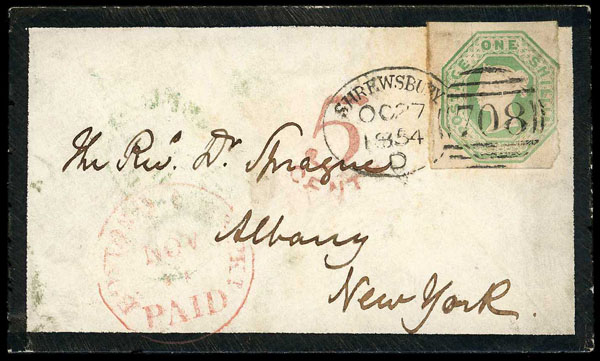 ONE SHILLING
SHREWSBURY
OC 27
1854
D
708
5
CENTS
The Revd. Dr. Sprague
Albany
New York.
NOV
PAID